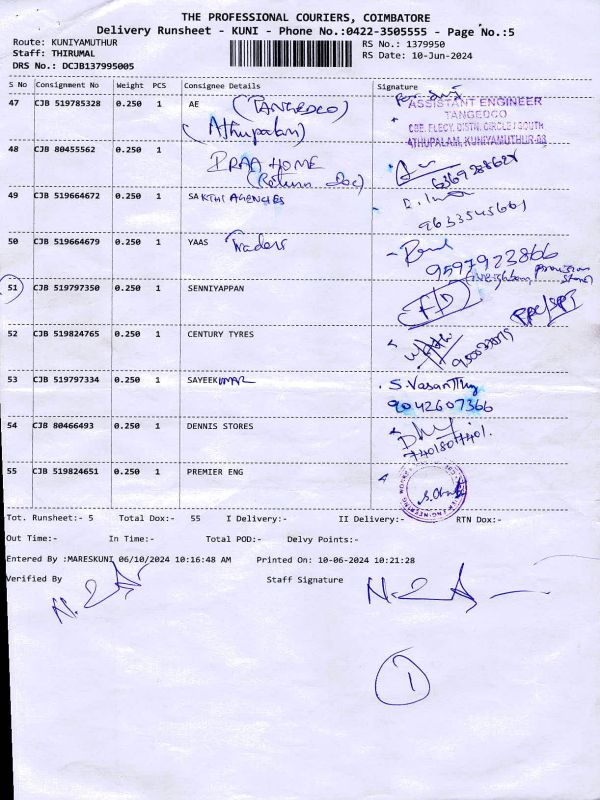 THE PROFESSIONAL COURIERS, COIMBATORE
Delivery Runsheet - KUNI - Phone No.:0422-3505555 - Page No.:5
Route: KUNIYAMUTHUR RS No.: 1379950
Staff: THIRUMAL RS Date: 10-Jun-2024
DRS No.: DCJB137995005
S No Consignment No Weight PCS Consignee Details Signature
47 CJB 519785328 0.250 1 AE (TANGEDCO)
(Athupalam)
ASSISTANT ENGINEER
TANGEDCO
CBE. ELECY. DISTN. CIRCLE / SOUTH
ATHUPALAM, KUNIYAMUTHUR-08
48 CJB 80455562 0.250 1 IRAA HOME
(Return Doc)
49 CJB 519664672 0.250 1 SAKTHI AGENCIES
9633545661
50 CJB 519664679 0.250 1 YAAS Traders
9597923866
51 CJB 519797350 0.250 1 SENNIYAPPAN
52 CJB 519824765 0.250 1 CENTURY TYRES
53 CJB 519797334 0.250 1 SAYEEKUMAR S. Vasanthy
9042607366
54 CJB 80466493 0.250 1 DENNIS STORES
7401807401.
55 CJB 519824651 0.250 1 PREMIER ENG
Tot. Runsheet:- 5 Total Dox:- 55 I Delivery:- II Delivery:- RTN Dox:-
Out Time:- In Time:- Total POD:- Delvy Points:-
Entered By :MARESKUNI 06/10/2024 10:16:48 AM Printed On: 10-06-2024 10:21:28
Verified By Staff Signature
1